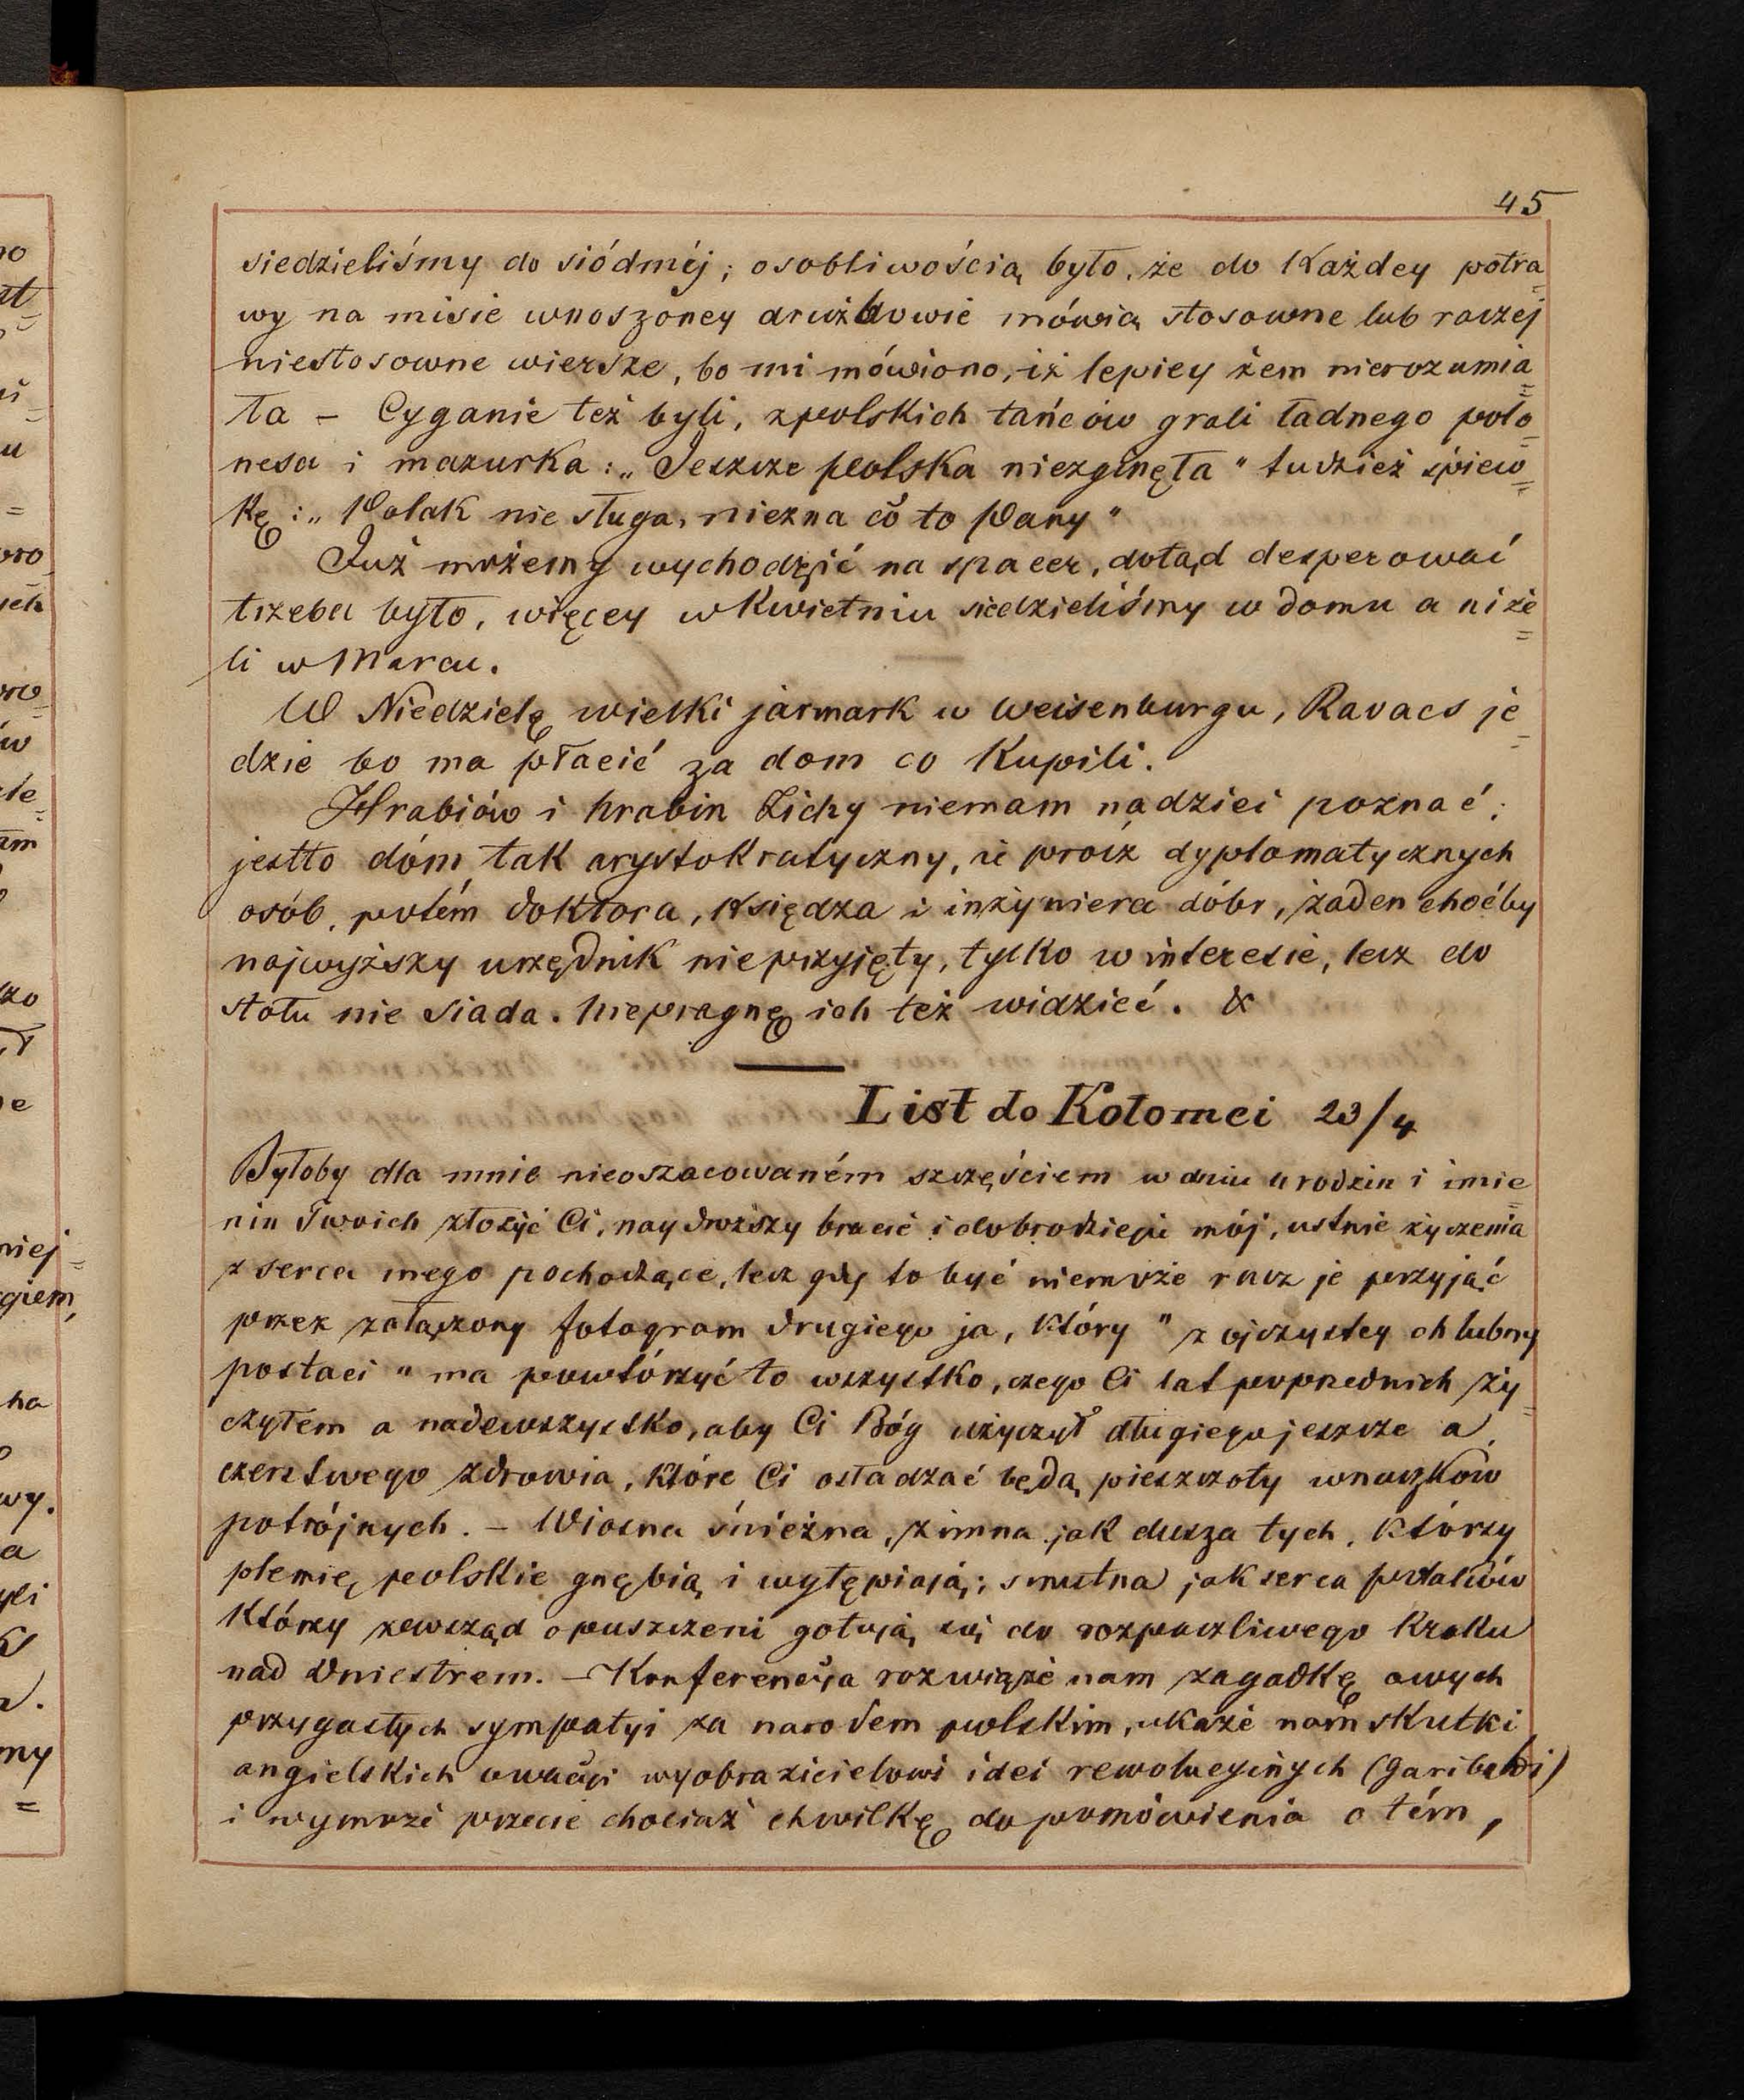 45
siedzieliśmy do siódméj; osobliwością było, że do Każdey potra=
wy na misie wnoszoney drużbowie mówią stosowne lub raczej
niestosowne wiersze, bo mi mówiono, iż lepiey żem nierozumia=
ła – Cyganie też byli, zpolskich tańców grali ładnego polo=
nesa i mazurka: „Jeszcze polska niezginęła" tudzież śpiew=
kę: „Polak nie sługa, niezna co to Pany"
Już możemy wychodzić na spacer, dotąd desperować
trzeba było, więcey w Kwietniu siedzieliśmy w domu a niże=
li w Marcu.
W Niedzielę wielki jarmark w Weisenburgu, Ravacs je=
dzie bo ma płacić za dom co Kupili.
Hrabiów i hrabin Zichy niemam nadziei poznać;
jestto dóm tak arystokratyczny, iż procz dyplomatycznych
osób, potém doktora, księdza i inżyniera dóbr, żaden choćby
najwyższy urzędnik nieprzyjęty, tylko w interesie, lecz do
stołu nie siada. Niepragnę ich też widzieć. &
List do Kołomei 23/4
Byłoby dla mnie nieoszacowaném szczęściem w dniu urodzin i imie=
nin Twoich złożyć Ci, naydroższy bracie i dobrodzieju mój, ustnie życzenia
z serca mego pochodzące, lecz gdy to być niemoże racz je przyjąć
przez załączony fotogram drugiego ja, który " z ojczystey chlubny
postaci " ma powtórzyć to wszystko, czego Ci lat poprzednich ży=
czyłem a nadewszystko, aby Ci Bóg użyczył długiego jeszcze a
czerstwego zdrowia, które Ci osładzać będą pieszczoty wnuczków
potrójnych. – Wiosna śnieżna, zimna jak dusza tych, którzy
plemię polskie gnębią i wytępiają; smutna jak serca polaków
którzy zewsząd opuszczeni gotują się do rozpaczliwego kroku
nad Dniestrem. – Konferencyja rozwiąże nam zagadkę owych
przygasłych sympatyi za narodem polskim, ukaże nam skutki
angielskich owacyi wyobrazicielowi idei rewolucyinych (Garibaldi)
i wymoże przecie chociaż chwilkę do pomówienia o tém,